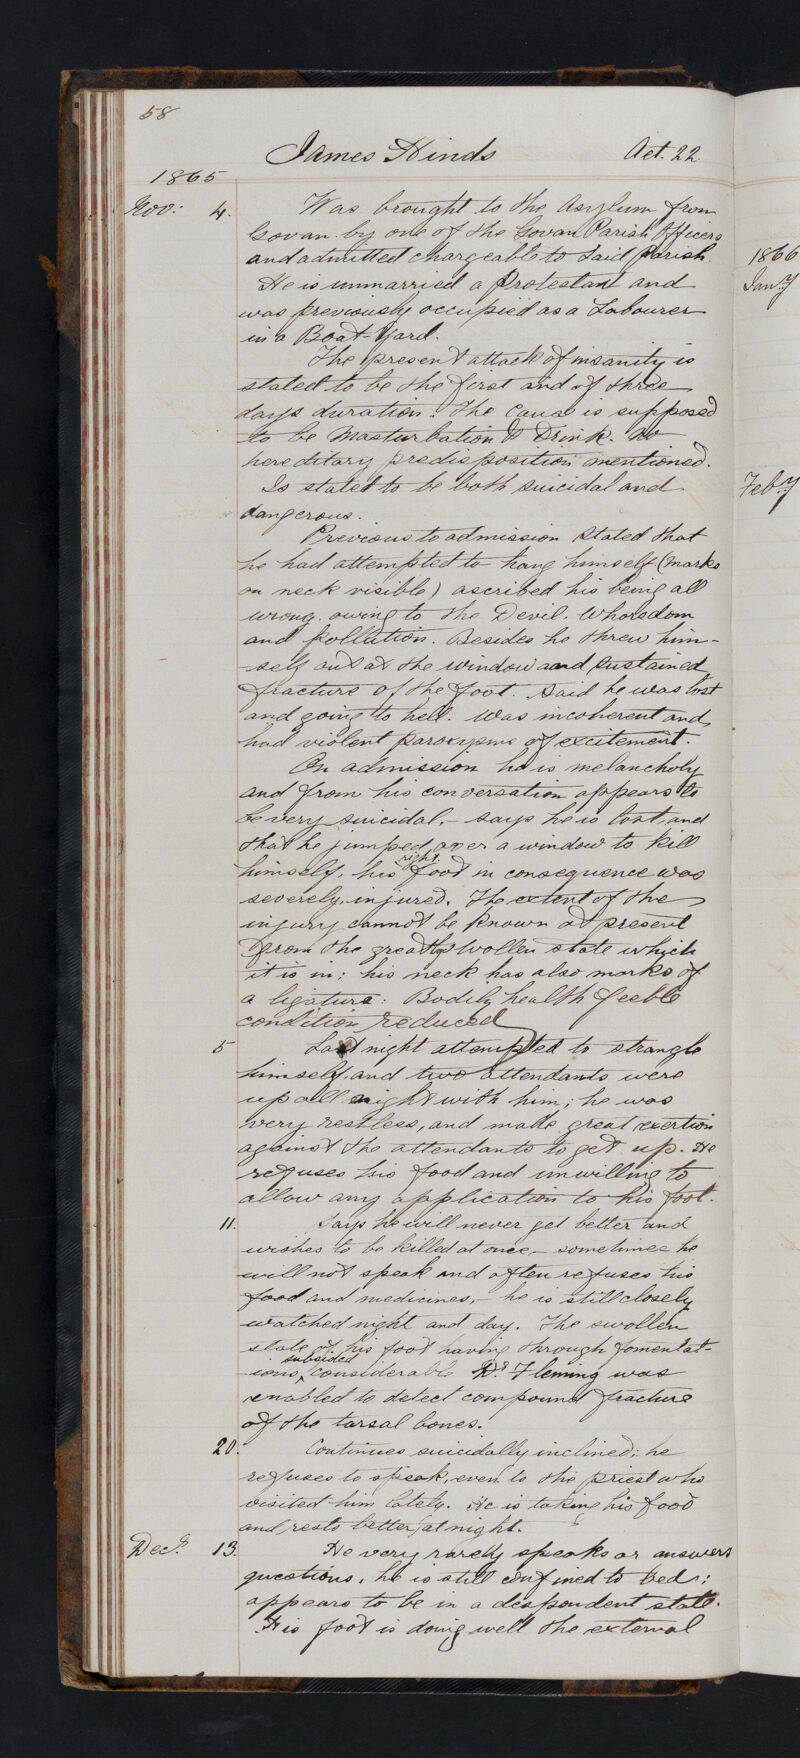 58
James Hinds Aet. 22.
1865
Nov: 4. Was brought to the Asylum from
Govan by one of the Govan Parish Officers
and admitted chargeable to said Parish.
He is unmarried a Protestant and
was previously occupied as a Labourer
in a Boat-Yard.
The present attack of insanity is
stated to be the first and of three
days duration. The cause is supposed
to be Masturbation & Drink. No
hereditary predisposition mentioned.
Is stated to be both suicidal and
dangerous.
Previous to admission stated that
he had attempted to hang himself (marks
on neck visible) ascribed his being all
wrong, owing to the Devil, Whoredom
and Pollution. Besides he threw him-
-self out at the window and sustained
fracture of the foot. Said he was lost
and going to hell. Was incoherent and
had violent paroxysms of excitement.
On admission he is melancholy
and from his conversation appears to
be very suicidal,- says he is lost, and
that he jumped over a window to kill
himself, his right foot in consequence was
severely injured. The extent of the
injury cannot be known at present
from the greatly swollen state which
it is in: his neck has also marks of
a ligature: Bodily health feeble
condition reduced
5 Last night attempted to strangle
himself, and two attendants were
up all night with him; he was
very restless, and made great exertion
against the attendants to get up. He
refuses his food and unwilling to
allow any application to his foot.
11. Says he will never get better and
wishes to be killed at once,- sometimes he
will not speak and often refuses his
food and medicines,- he is still closely
watched night and day. The swollen
state of his foot having through fomentat-
ions subsided considerable Dr. Fleming was
enabled to detect compound fracture
of the tarsal bones.
20. Continues suicidally inclined; he
refuses to speak, even to the priest who
visited him lately. He is taking his food
and rests better at night.
Decr. 13. He very rarely speaks or answers
questions, he is still confined to bed;
appears to be in a despondent state.
His foot is doing well the external
1866
Jany
Feby